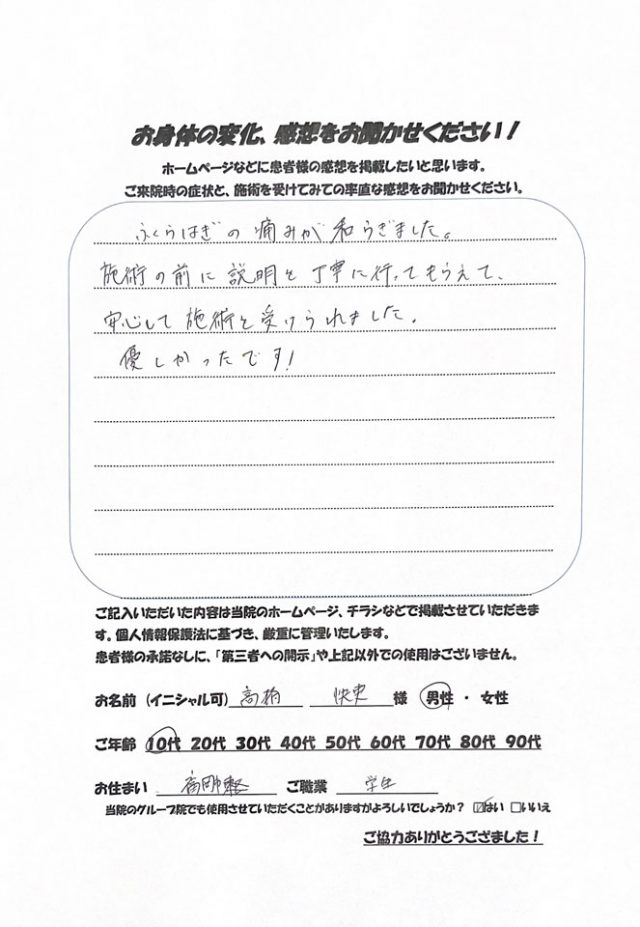 お身体の変化、感想をお聞かせください！
ホームページなどに患者様の感想を掲載したいと思います。
ご来院時の症状と、施術を受けてみての率直な感想をお聞かせください。
ふくらはぎの痛みが和らぎました。
施術の前に説明を丁寧に行ってもらえて、
安心して施術を受けられました。
優しかったです！
ご記入いただいた内容は当院のホームページ、チラシなどで掲載させていただきま
す。個人情報保護法に基づき、厳重に管理いたします。
患者様の承諾なしに、「第三者への開示」や上記以外での使用はございません。
お名前（イニシャル可） 様 男性 ・ 女性
ご年齢 10代 20代 30代 40代 50代 60代 70代 80代 90代
お住まい ご職業 学生
当院のグループ院でも使用させていただくことがありますがよろしいでしょうか？ ☑はい □いいえ
ご協力ありがとうござました！